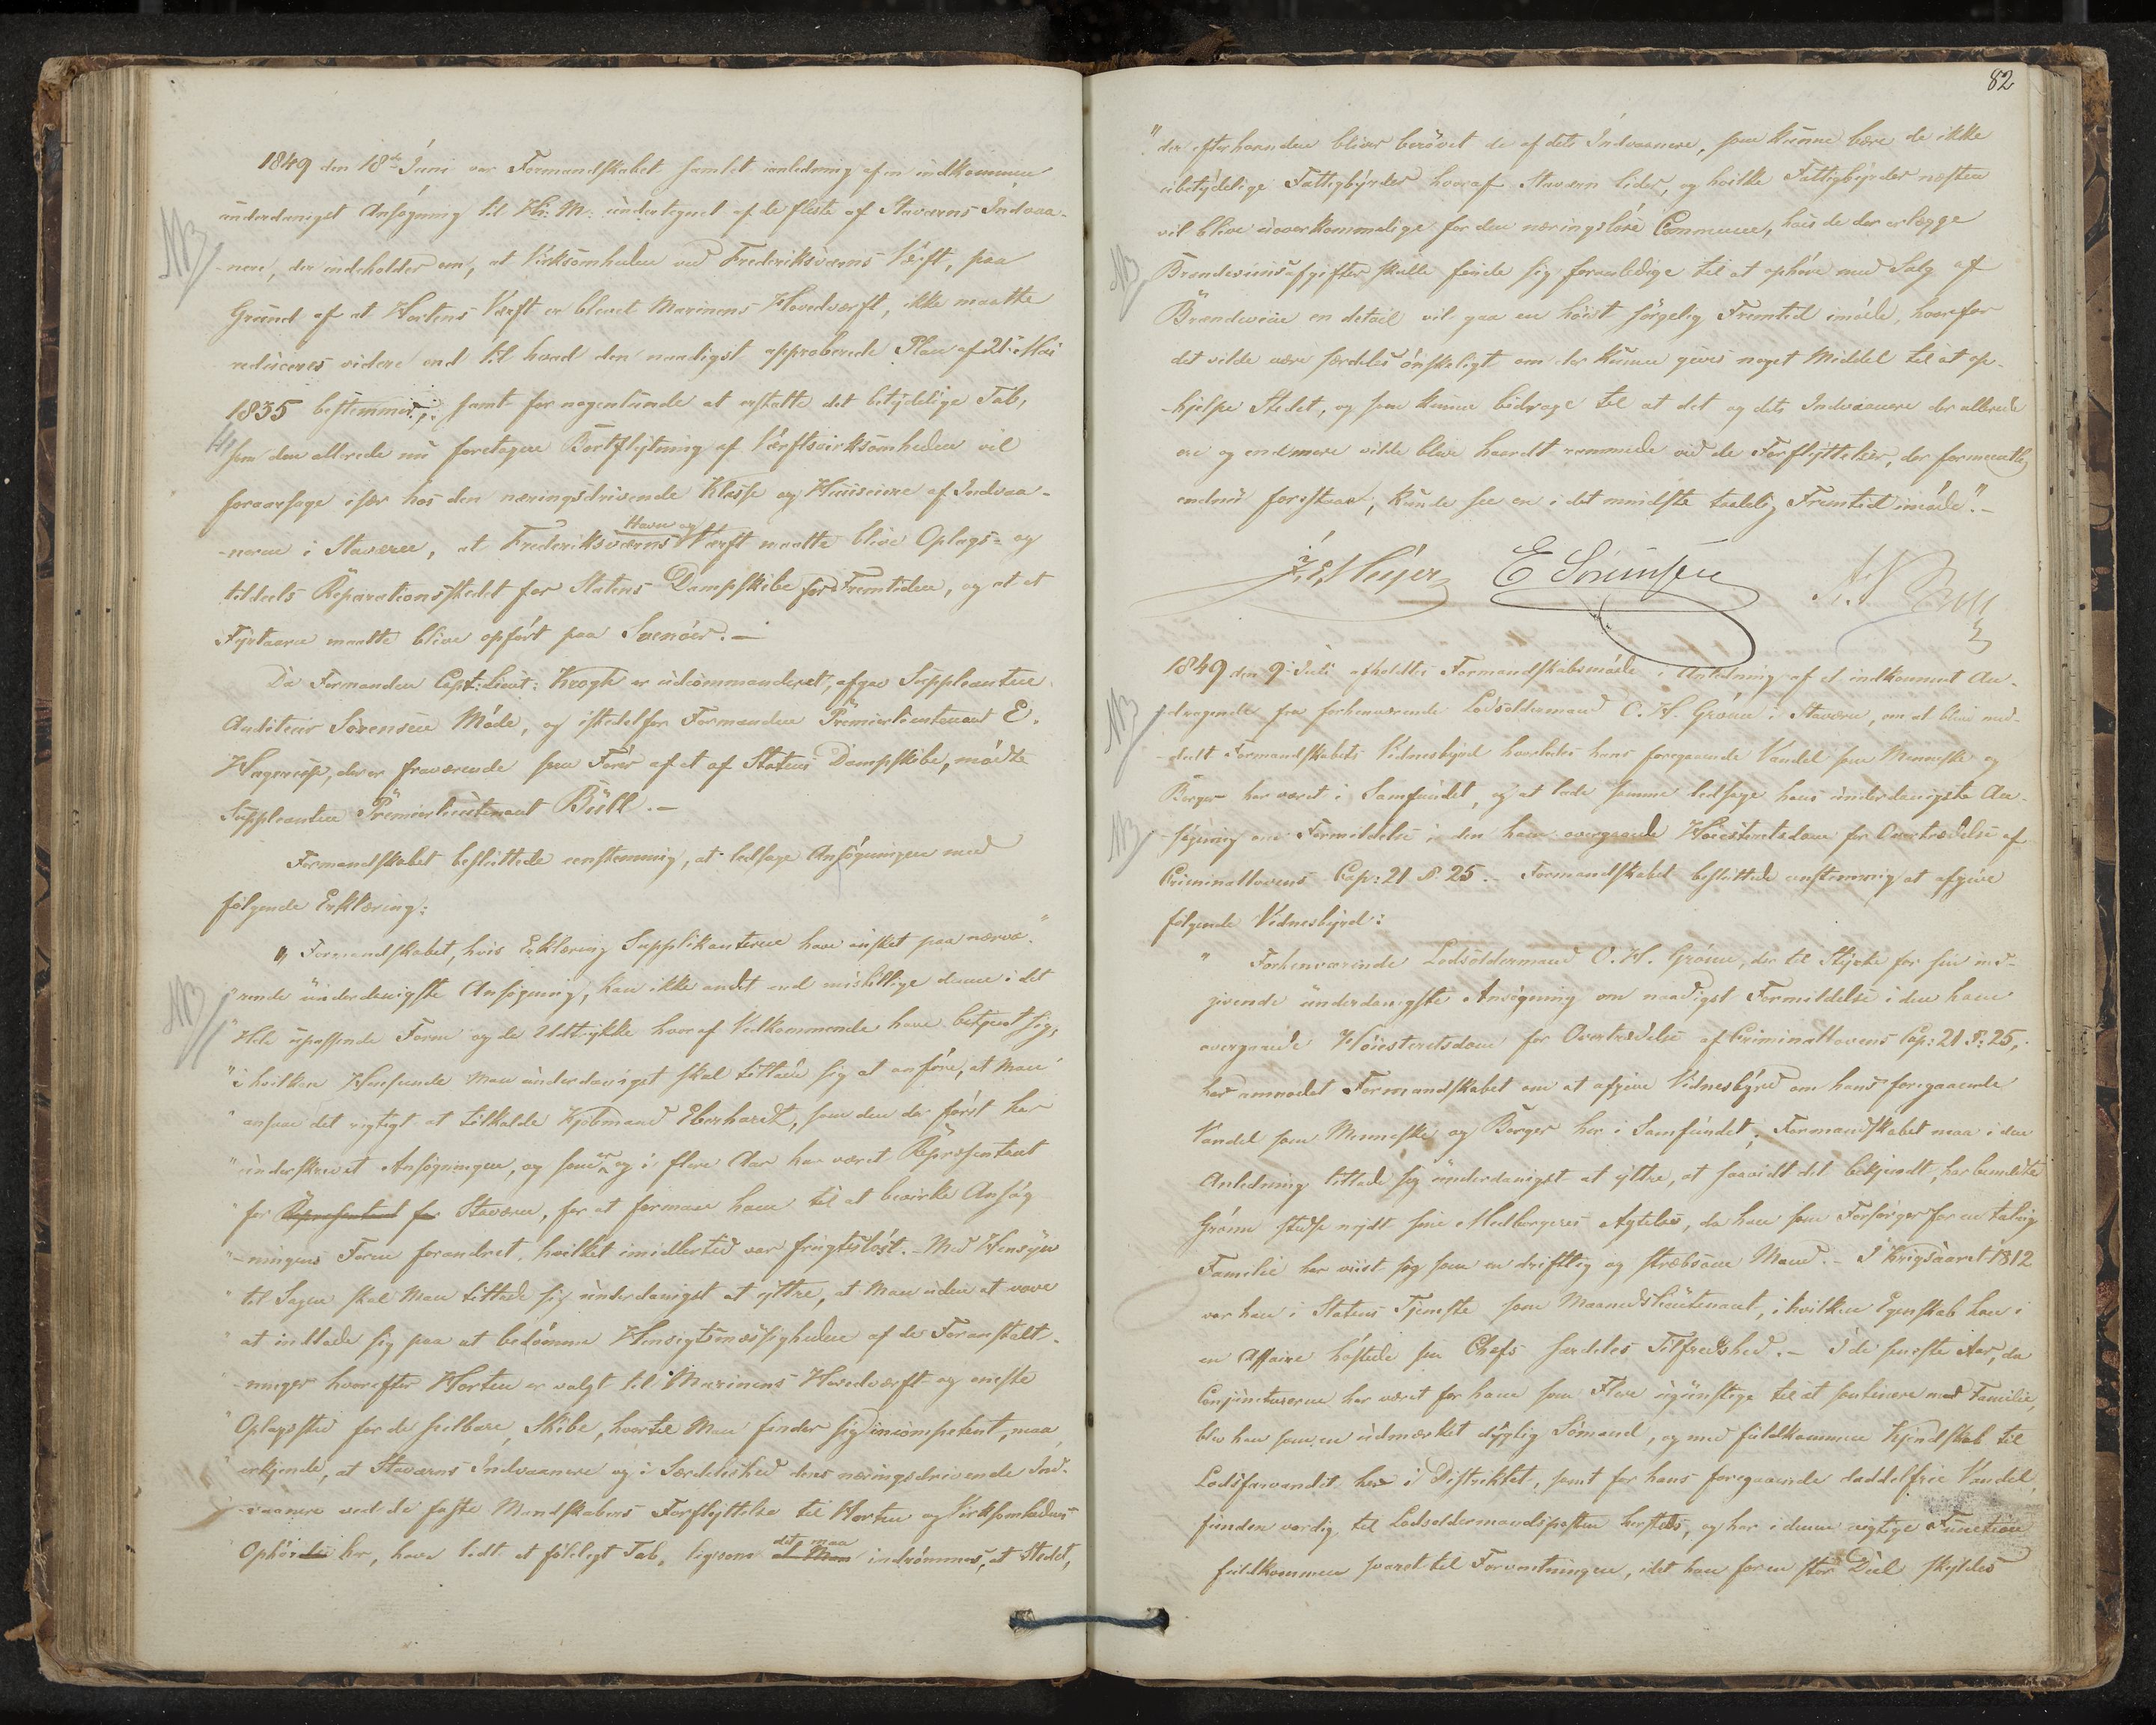 1849 den 18de Juni var Formandskabet samlet ianledning af en indkommen
underdanigst Ansøgning til Hs: M: undertegnet af de fleste af Staværns Indvaa-
NB
-nere, der indeholder om, at Virksomheden ved Frederiksværns Værft, paa
Grund af at Hortens Værft er blevet Marinens Hovedværft, ikke maatte
reduceres videre end til hvad den naadigst approberede Plan af 21 Mai
1835 bestemmer, samt for nogenlunde at erstatte det betydelige Tab,
som den allerede nu foretagne Bortflytning af Værftsvirksomheden vil
foraarsage især hos den næringsdrivende Klasse og Huuseiere af Indvaa-
Havn og
-nerne i Staværn, at Frederiksværns Værft maatte blive Oplags- og
tildeels Reparationsstedet for Statens Dampskibe for Fremtiden, og at et
Fyrtaarn maatte blive opført paa Svenøer.-
Da Formanden Capt: Lieut: Krogh er udcommanderet, afgav Suppleanten
Auditeur Sørensen Møde, og istedetfor Formanden Premierlieutenant E.
Hagerup, der er fraværende som Fører af et af Statens Dampskibe, mødte
Suppleanten Premierlieutenant Büll.-
Formandskabet besluttede eenstemmig, at ledsage Ansøgningen med
følgende Erklæring:
„Formandskabet, hvis Erklæring Supplikanterne have ønsket paa nærvæ-"
NB
"rende underdanigste Ansøgning, kan ikke andet end misbillige denne i det
"Hele upassende Form og de Udtrykke hvoraf Vedkommende have betjent sig,
"i hvilken Henseende Man underdanigst skal tillade sig at anføre, at Man
"ansaae det rigtigt at tilkalde Kjøbmand Eberhardt, som den der først har
"underskrevet Ansøgningen, og som er og i flere Aar har været Repræsentant
"for Repræsentant for Staværn, for at formaae ham til at bevirke Ansøg-
"-ningens Form forandret, hvilket imidlertid var frugtesløst.- Med Hensyn
"til Sagen skal Man tillade sig underdanigst at yttre, at Man uden at vove
"at indlade sig paa at bedømme Hensigtsmæssigheden af de Foranstalt-
"-ninger hvorefter Horten er valgt til Marinens Hovedværft og eneste
"Oplagssted for de seilbare Skibe, hvortil Man finder sig incompetent, maa
"erkjende, at Staværns Indvaanere og i Særdeleshed dens næringsdrivende Ind-
"-vaanere ved de faste Mandskabers Forflyttelse til Horten og Virksomhedens
det maa
Ophør her, have lidt et føleligt Tab, ligesom at Man indrømmes, at Stedet,
82
"der efterhaanden bliver berøvet de af dets Indvaanere, som kunne bære de ikke
ubetydelige Fattigbyrder hvoraf Staværn lider, og hvilke Fattigbyrder næsten
vil blive uoverkommelige for den næringsløse Commune, hvis de der erlægge
NB
Brændeviinsafgifter skulle finde sig foranledige til at ophøre med Salg af
Brændeviin en detail vil gaa en høist sørgelig Fremtid imøde, hvorfor
det vilde være særdeles ønskeligt om der kunne gives noget Middel til at op-
-hjelpe Stedet, og som kunne bidrage til at det og dets Indvaanere der allerede
ere og endmere vilde blive haardt rammede ved de Forflyttelser, der formeentlig
endnu forestaae, kunde see en i det mindste taalelig Fremtid imøde".-
E Sørensen
1849 den 9 Juli afholdtes Formandskabsmøde i Anledning af et indkommet An-
NB
-dragende fra forhenværende Lodsoldermand O. H. Grønn i Staværn, om at blive med-
-deelt Formandskabets Vidnesbyrd hvorledes hans foregaaende Vandel som Menneske og
Borger har været i Samfundet, og at lade samme ledsage hans underdanigste An-
NB
-søgning om Formildelse i den ham overgaaede Høiesteretsdom for Overtrædelse af
Criminallovens Cap: 21 § 25.- Formandskabet besluttede eenstemmig at afgive
følgende Vidnesbyrd:
" Forhenværende Lodsoldermand O. H. Grønn, der til Styrke for sin ind-
givende underdanigste Ansøgning om naadigst Formildelse i den ham
overgaaede Høiesteretsdom for Overtrædelse af Criminallovens Cap: 21 §: 25,
har anmodet Formandskabet om at afgive Vidnesbyrd om hans foregaaende
Vandel som Menneske og Borger her i Samfundet; Formandskabet maa i den
Anledning tillade sig underdanigst at yttre, at saavidt det bekjendt, har bemeldte
Grønn stedse nydt sine Medborgeres Agtelse, da han som Forsørger for en talrig
Familie har viist sig som en driftig og stræbsom Mand.- I Krigsaaret 1812
var han i Statens Tjeneste som Maanedslieutenant, i hvilken Egenskab han i
en Affaire høstede sin Chefs særdeles Tilfredshed.- I de seneste Aar, da
Conjuncturerne har været for ham som Flere ugunstige til at med Familie,
blev han som en udmærket dygtig Sømand, og med fuldkommen Kjendskab til
Lodsfarvandet her i Distriktet, samt for hans foregaaende daddelfrie Vandel,
funden værdig til Lodsoldermandsposten hersteds, og har i denne vigtige Function
fuldkommen svaret til Forventningen, idet han for en stor Deel skyldes